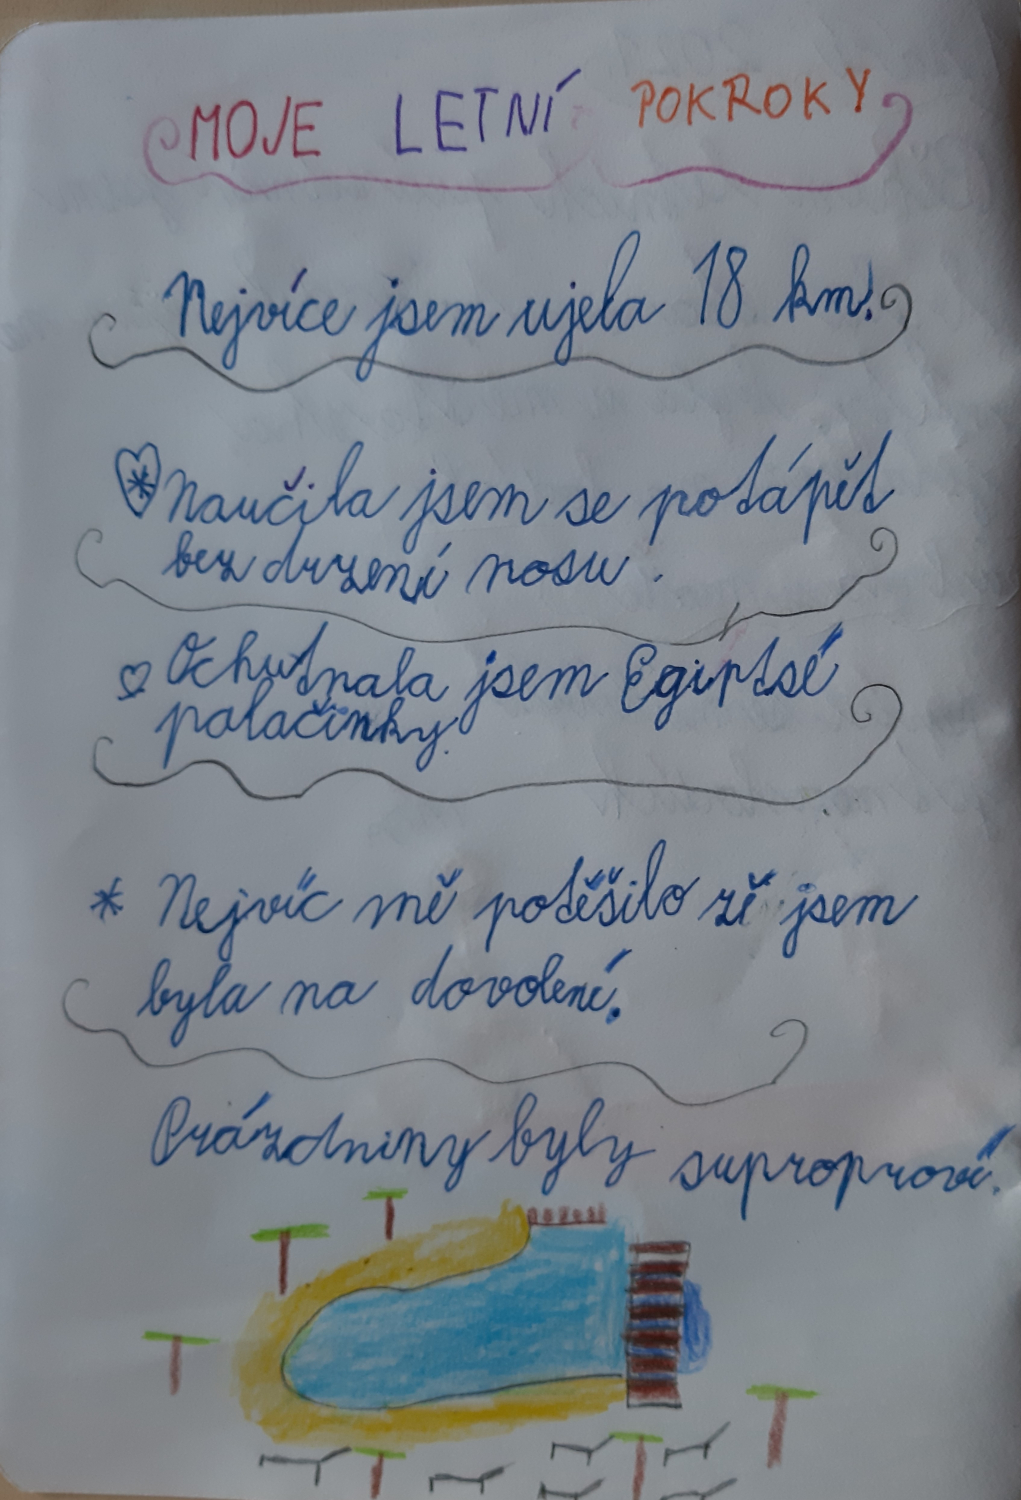 MOJE LETNÍ POKROKY
Nejvíce jsem ujela 18 km!
Naučila jsem se potápět
bez drzení nosu.
Ochutnala jsem Egiptsé
palačinky.
Nejvíc mě potěšilo zě jsem
byla na dovolení.
Prázdniny byly suproprové.